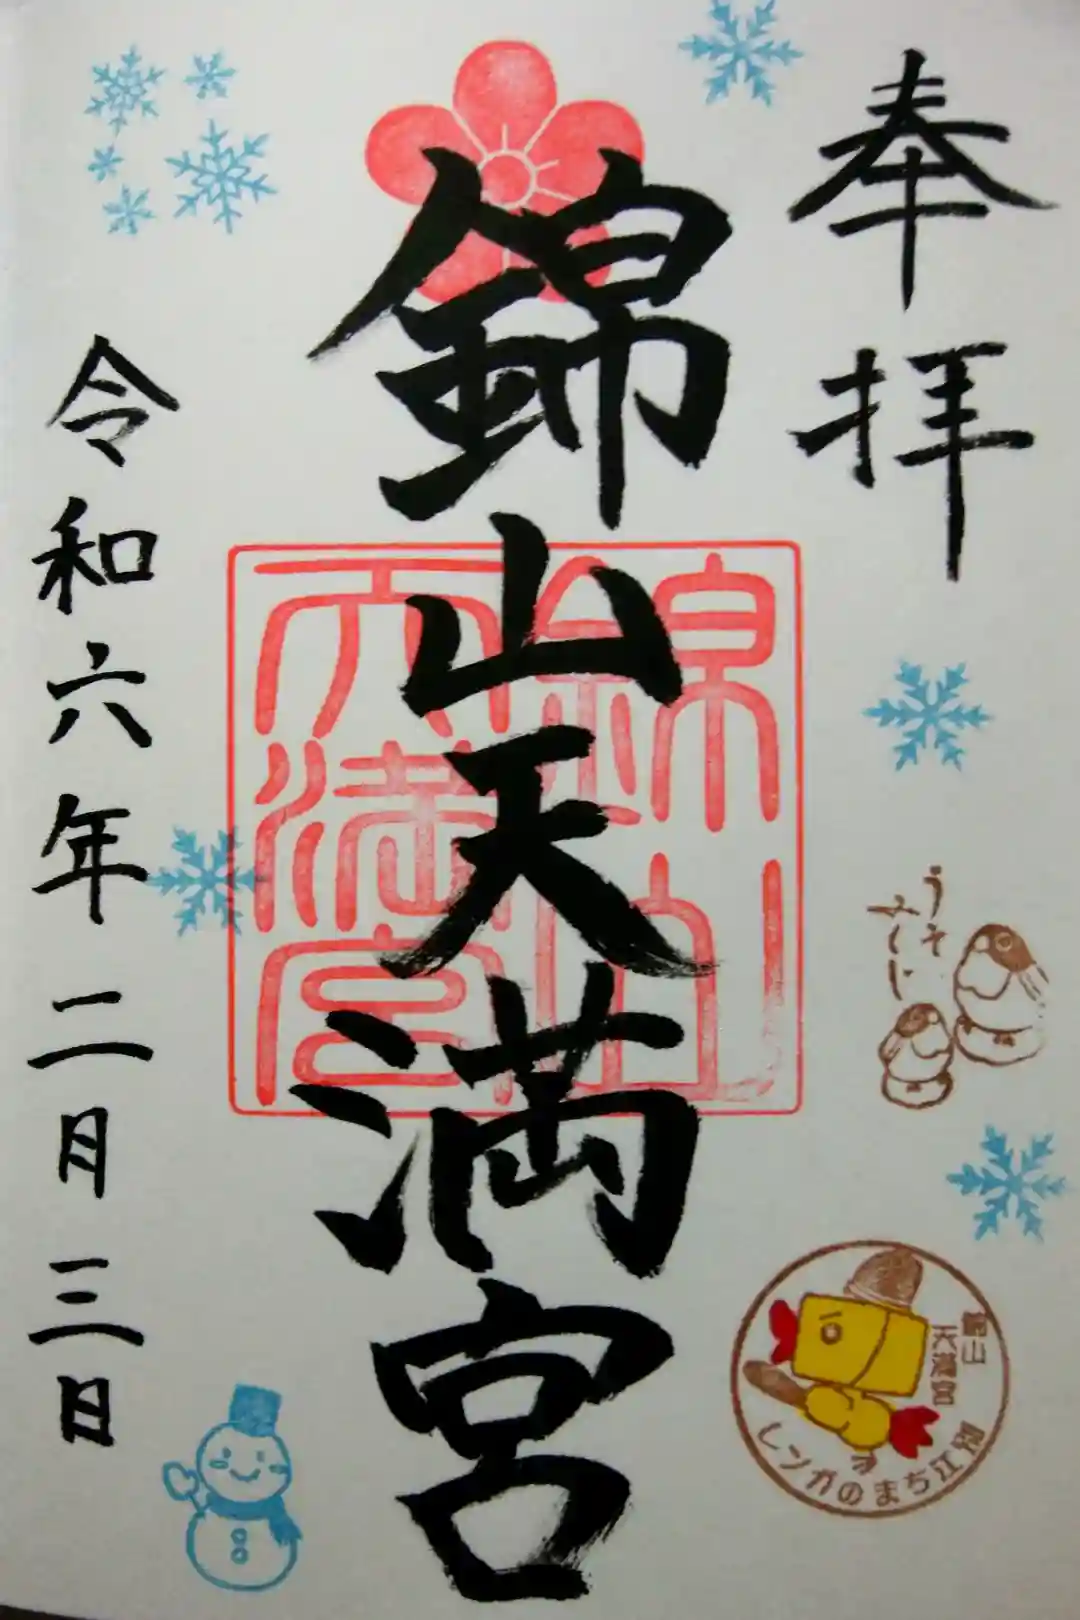 奉拝
錦山天満宮
錦山天満宮
令和六年二月三日
うそ
みくじ
錦山
天満宮
レンガのまち江別